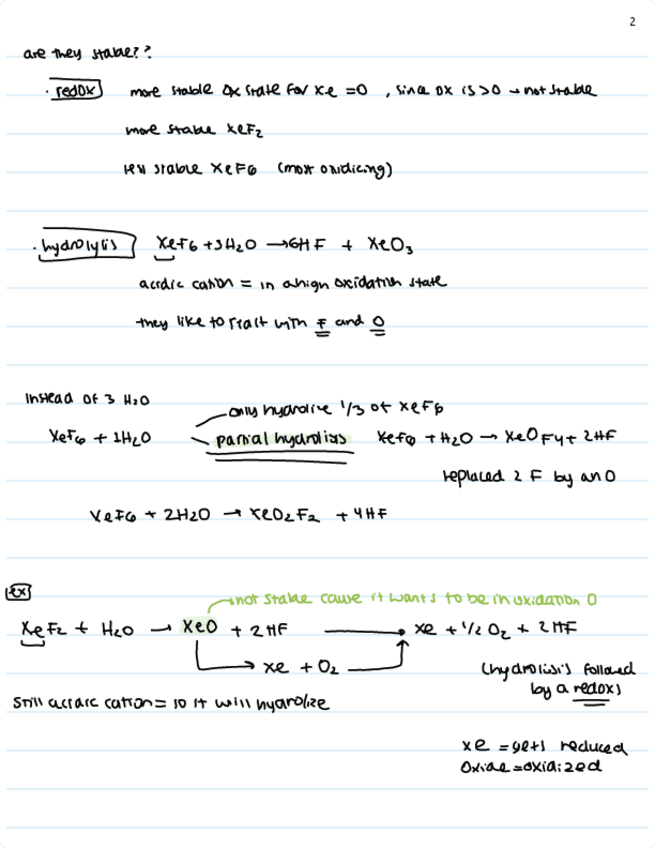 2
are they stable??
· redox more stable Ox state for Xe = 0 , since ox is >0 → not stable
more stable XeF2
less stable XeF6 (most oxidicing)
· hydrolysis XeF6 + 3H2O → 6HF + XeO3
acidic cation = in a high oxidation state
they like to react with F and O
Instead of 3 H2O
only hydrolize 1/3 of XeF6
XeF6 + 1H2O partial hydrolisys XeF6 + H2O → XeOF4 + 2HF
replaced 2 F by an O
XeF6 + 2H2O → XeO2F2 + 4HF
ex
not stable cause it wants to be in oxidation 0
XeF2 + H2O → XeO + 2HF → Xe + 1/2 O2 + 2HF
→ Xe + O2
(hydrolisis followed
by a redox)
Still acidic cation = so it will hydrolize
Xe = gets reduced
Oxide = oxidized